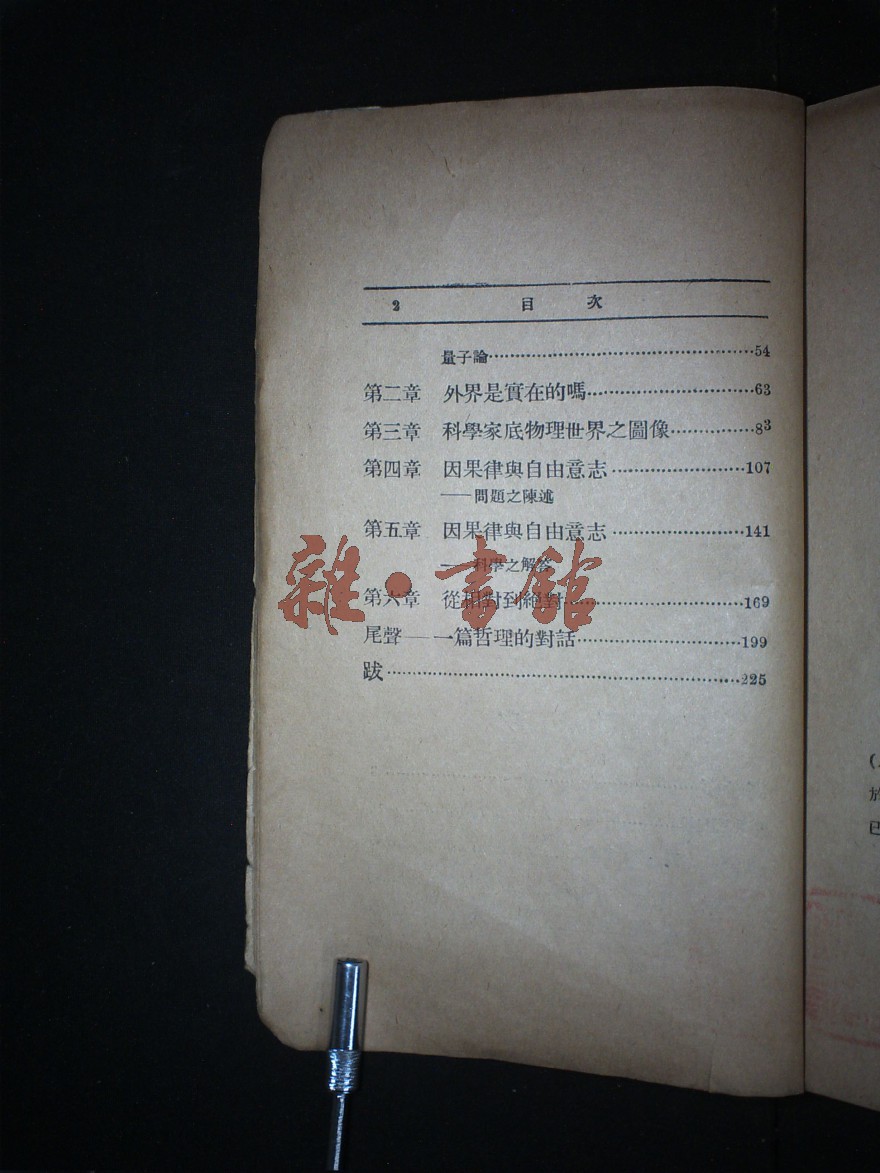 2 目次
量子論……54
第二章 外界是實在的嗎……63
第三章 科學家底物理世界之圖像……83
第四章 因果律與自由意志……107
——問題之陳述
第五章 因果律與自由意志……141
——科學之解答
第六章 從相對到絕對……169
尾聲——一篇哲理的對話……199
跋……225
雜·書館
於